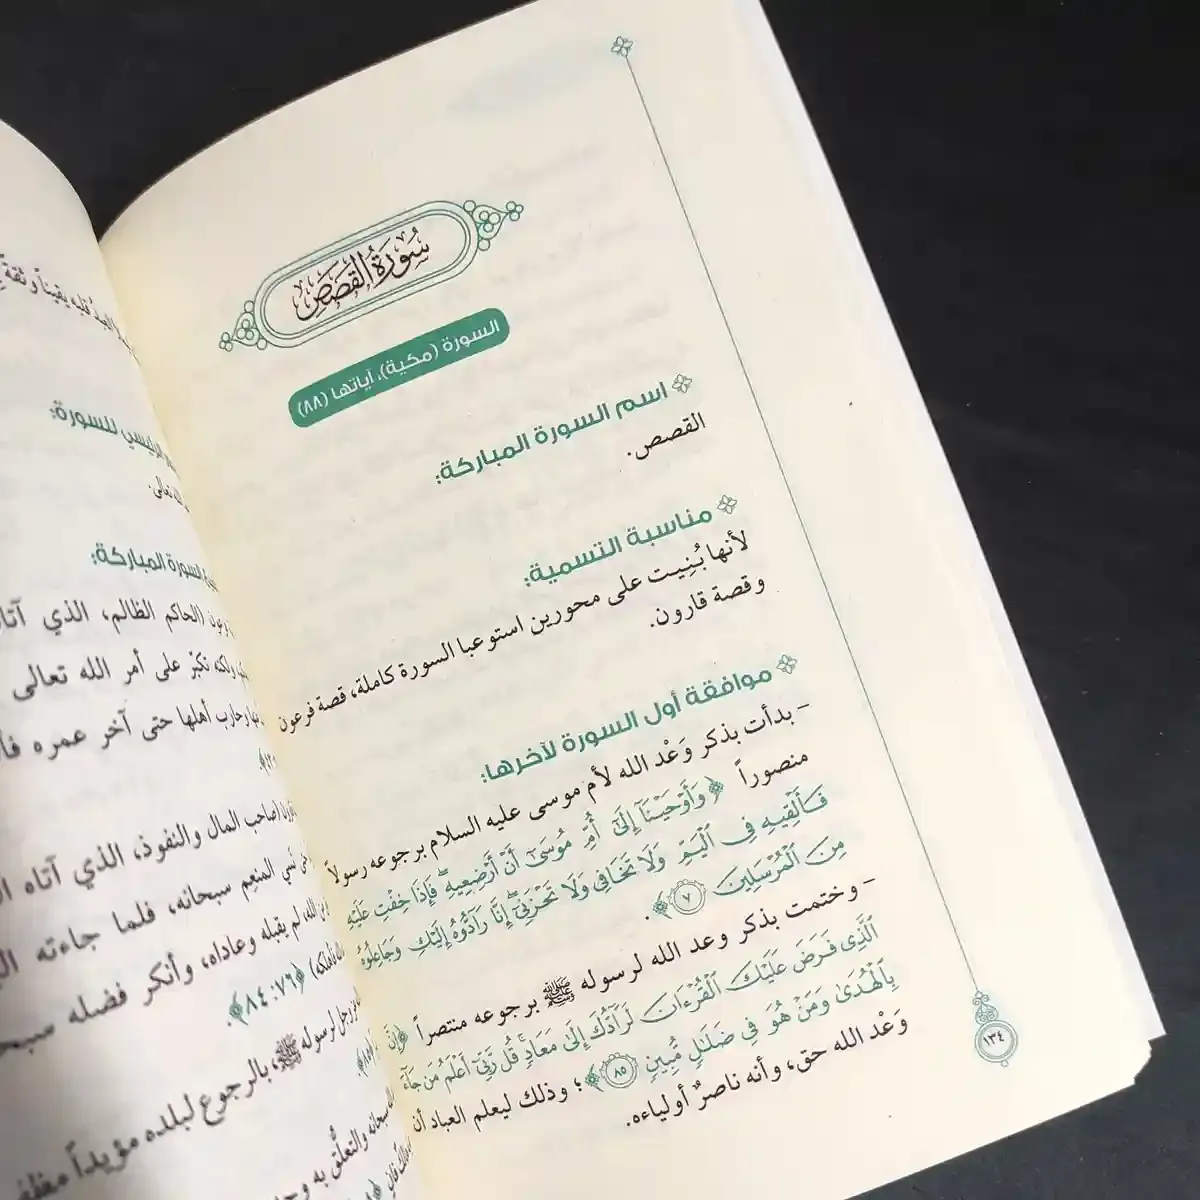 سُورَةُ القَصَصِ
السورة (مكية)، آياتها (٨٨)
اسم السورة المباركة:
القصص.
مناسبة التسمية:
لأنها بُنِيت على محورين استوعبا السورة كاملة، قصة فرعون
وقصة قارون.
موافقة أول السورة لآخرها:
- بدأت بذكر وَعْد الله لأم موسى عليه السلام برجوعه رسولاً
منصوراً ﴿وَأَوْحَيْنَآ إِلَىٰٓ أُمِّ مُوسَىٰٓ أَنْ أَرْضِعِيهِ ۖ فَإِذَا خِفْتِ عَلَيْهِ
فَأَلْقِيهِ فِي الْيَمِّ وَلَا تَخَافِي وَلَا تَحْزَنِيٓ ۖ إِنَّا رَآدُّوهُ إِلَيْكِ وَجَاعِلُوهُ
مِنَ الْمُرْسَلِينَ ٧﴾.
- وختمت بذكر وعد الله لرسوله ﷺ برجوعه منتصراً ﴿إِنَّ
الَّذِي فَرَضَ عَلَيْكَ الْقُرْءَانَ لَرَآدُّكَ إِلَىٰ مَعَادٍ ۚ قُل رَّبِّيٓ أَعْلَمُ مَن جَآءَ
بِالْهُدَىٰ وَمَنْ هُوَ فِي ضَلَٰلٍ مُّبِينٍ ٨٥﴾؛ وذلك ليعلم العباد أن
وَعْد الله حق، وأنه ناصرٌ أولياءه.
١٣٤
يقيناً وثقةً
الرئيسي للسورة:
السورة المباركة:
(الحاكم الظالم، الذي
ولكنه تكبّر على أمر الله تعالى
وحارب أهلها حتى آخر عمره
صاحب المال والنفوذ، الذي آتاه
نسي المنعِم سبحانه، فلما جاءته
الله، لم يقبله وعاداه، وأنكر فضله
﴿٧٦:٨٤﴾.
لرسوله ﷺ، بالرجوع لبلده مؤيداً
سبحانه والتعلّق به